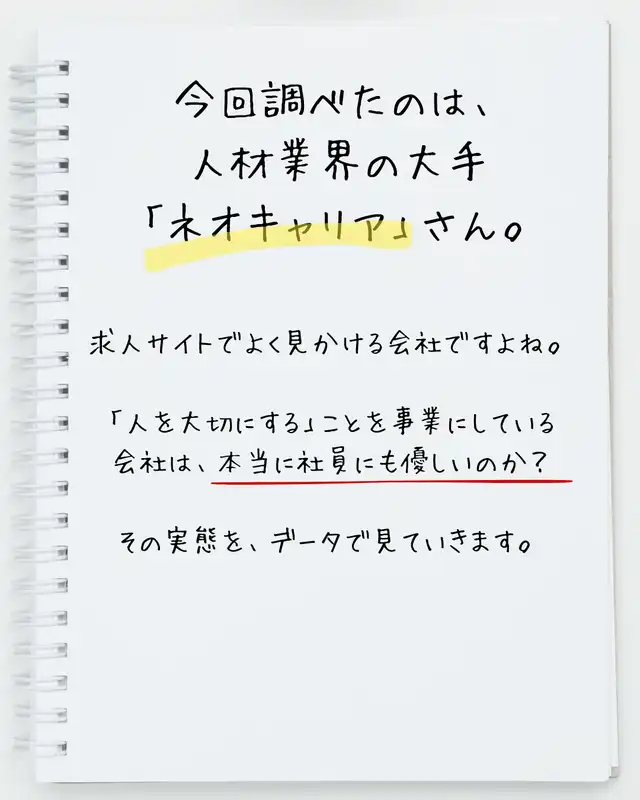 今回調べたのは、
人材業界の大手
「ネオキャリア」さん。
求人サイトでよく見かける会社ですよね。
「人を大切にする」ことを事業にしている
会社は、本当に社員にも優しいのか？
その実態を、データで見ていきます。